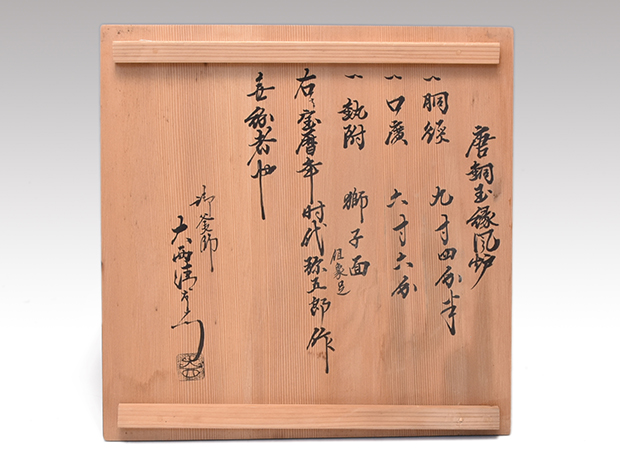 唐銅玉縁風炉
一 胴径 九寸四分半
一 口広 六寸六分
一 執附 獅子面 但象足
右ハ宝暦年時代弥五郎作
無紛者也
御釜師
大西清右衛門